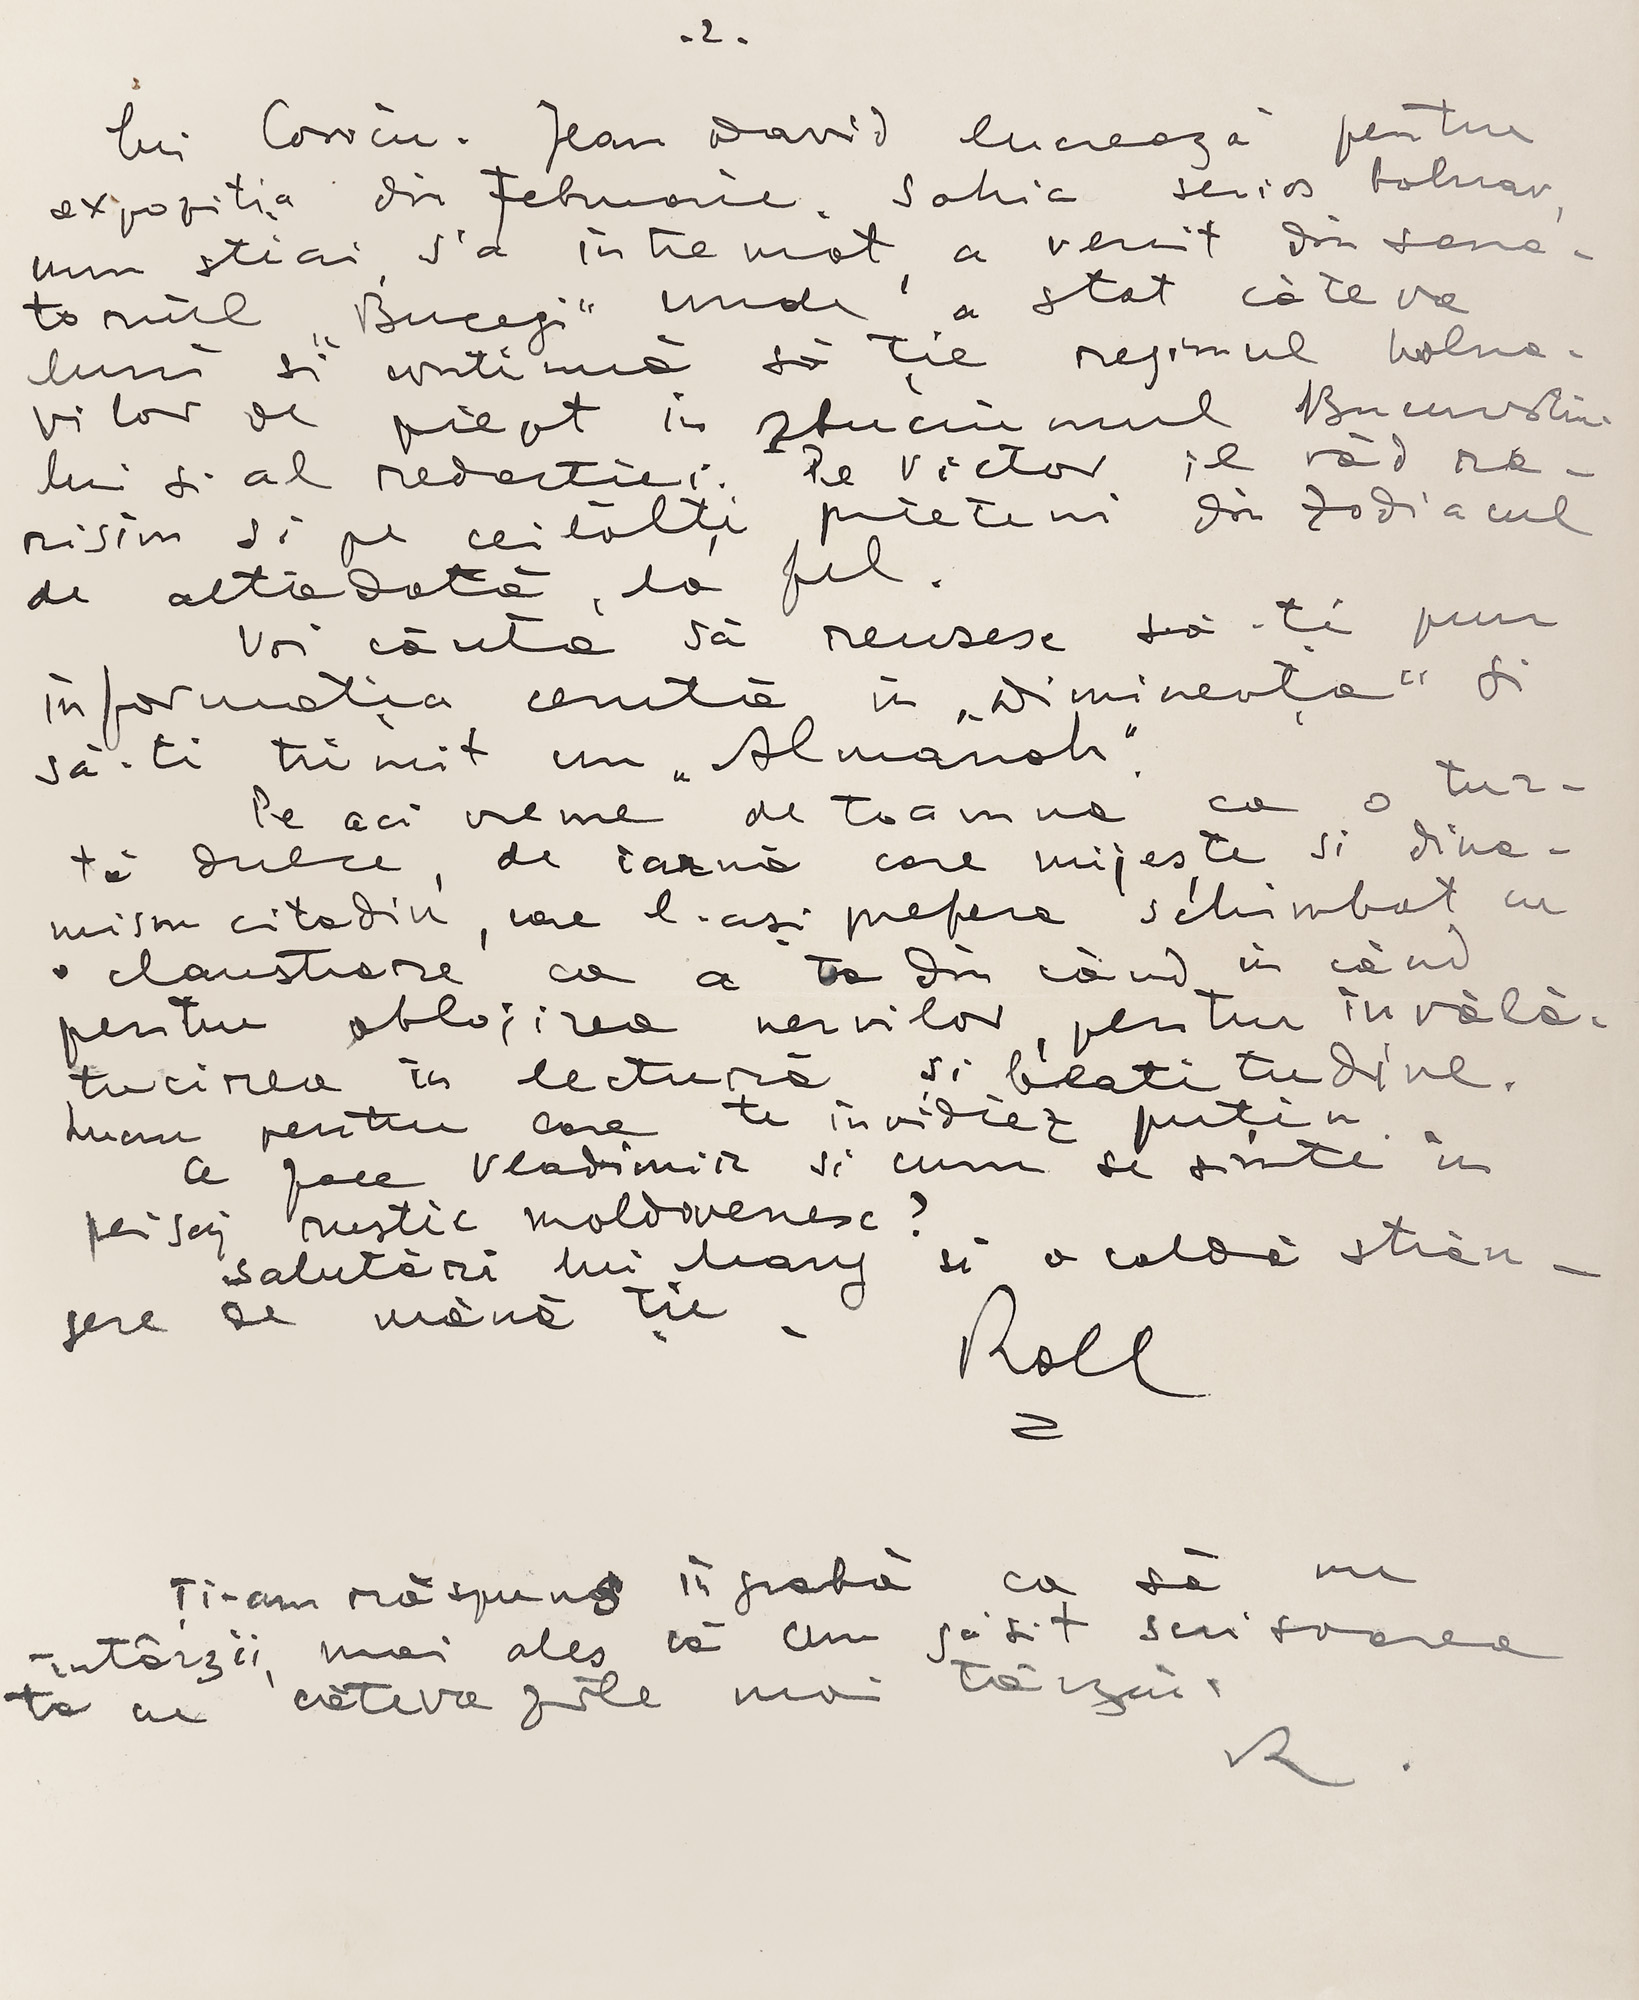 -2-
lui Cosciu. Jean David lucrează pentru
expoziția din Februarie. Sahia serios bolnav,
cum știai, s'a întremat, a venit din sana-
toriul „Bucegi" unde a stat câteva
luni și continuă să ție regimul bolna-
vilor de piept în zbuciumul Bucureștiu-
lui și al redacției. Pe Victor îl văd ra-
risim și pe ceilalți prieteni din Zodiacul
de altădată, la fel.
Voi căuta să reusesc să-ți pun
informația cerută în „Dimineața" și
să-ti trimit un „Almanah".
Pe aci vreme de toamna ca o tur-
tă dulce, de iarnă care mijește si dina-
mism citadin, care l-ași prefera schimbat cu
o claustrare ca a ta din când în când
pentru oblojirea nervilor, pentru învălă-
tucirea în lectură și beatitudine.
Lucru pentru care te invidiez puțin.
Ce face Vladimir si cum se simte în
peisaj rustic moldovenesc?
Salutări lui Mary si o caldă strân-
gere de mână ție.
Roll
Ți-am răspuns în grabă ca să nu
întârzii, mai ales că am găsit scrisoarea
ta cu câteva zile mai târziu.
R.